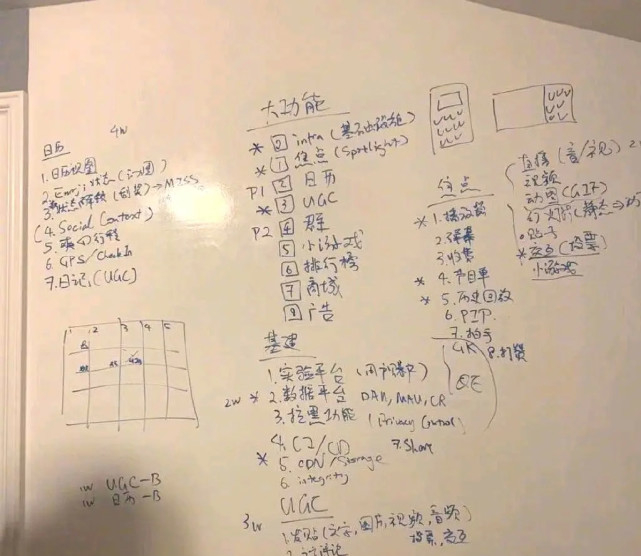 日历 4w
1. 日历视图
2. Emoji 状态 (心图)
(4. Social Context)
6. GPS/Check In
7. 日记 (UGC)
1 2 3 4 5
1w UGC-B
1w 日历-B
大功能
* 0 intra (基础
* 1 焦点 (Spotlight)
P1 2 日历
* 3 UGC
P2 4 群
5 小游戏
6 排行榜
7 商城
8 广告
基建
1. 实验平台
2w * 2. 数据平台 DAU, MAU, CR
3. 拉黑功能 (Privacy Control)
4. CI/CD
7. Share
* 5. CDN/Storage
6. integrity
3w UGC
1. 发贴 (文字, 图片, 视频, 音频)
投票, 交互
2. 评论
焦点
* 1. 播放器
2. 弹幕
3. 收集
* 4. 节目单
* 5. 历史回放
6. PIP.
7. 拍手
8. 打赏
直播 (音/视)
视频
动图 (GIF)
幻灯片 (静态
贴子
* 交互 (投票
小游戏